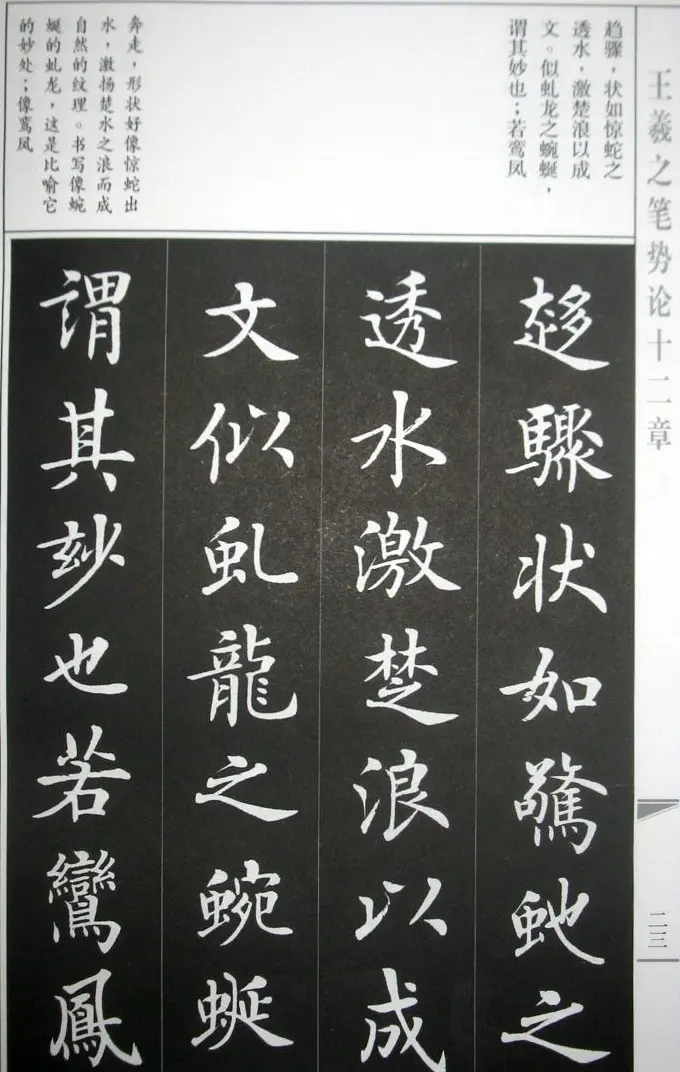 王羲之笔势论十二章
趋骤，状如惊蛇之
透水，激楚浪以成
文。似虬龙之蜿蜒，
谓其妙也；若鸾凤
奔走，形状好像惊蛇出
水，激扬楚水之浪而成
自然的纹理。书写像蜿
蜒的虬龙，这是比喻它
的妙处；像鸾凤
趍驟状如驚虵之
透水激楚浪以成
文似虬龍之蜿蜒
謂其玅也若鸞鳳
二三